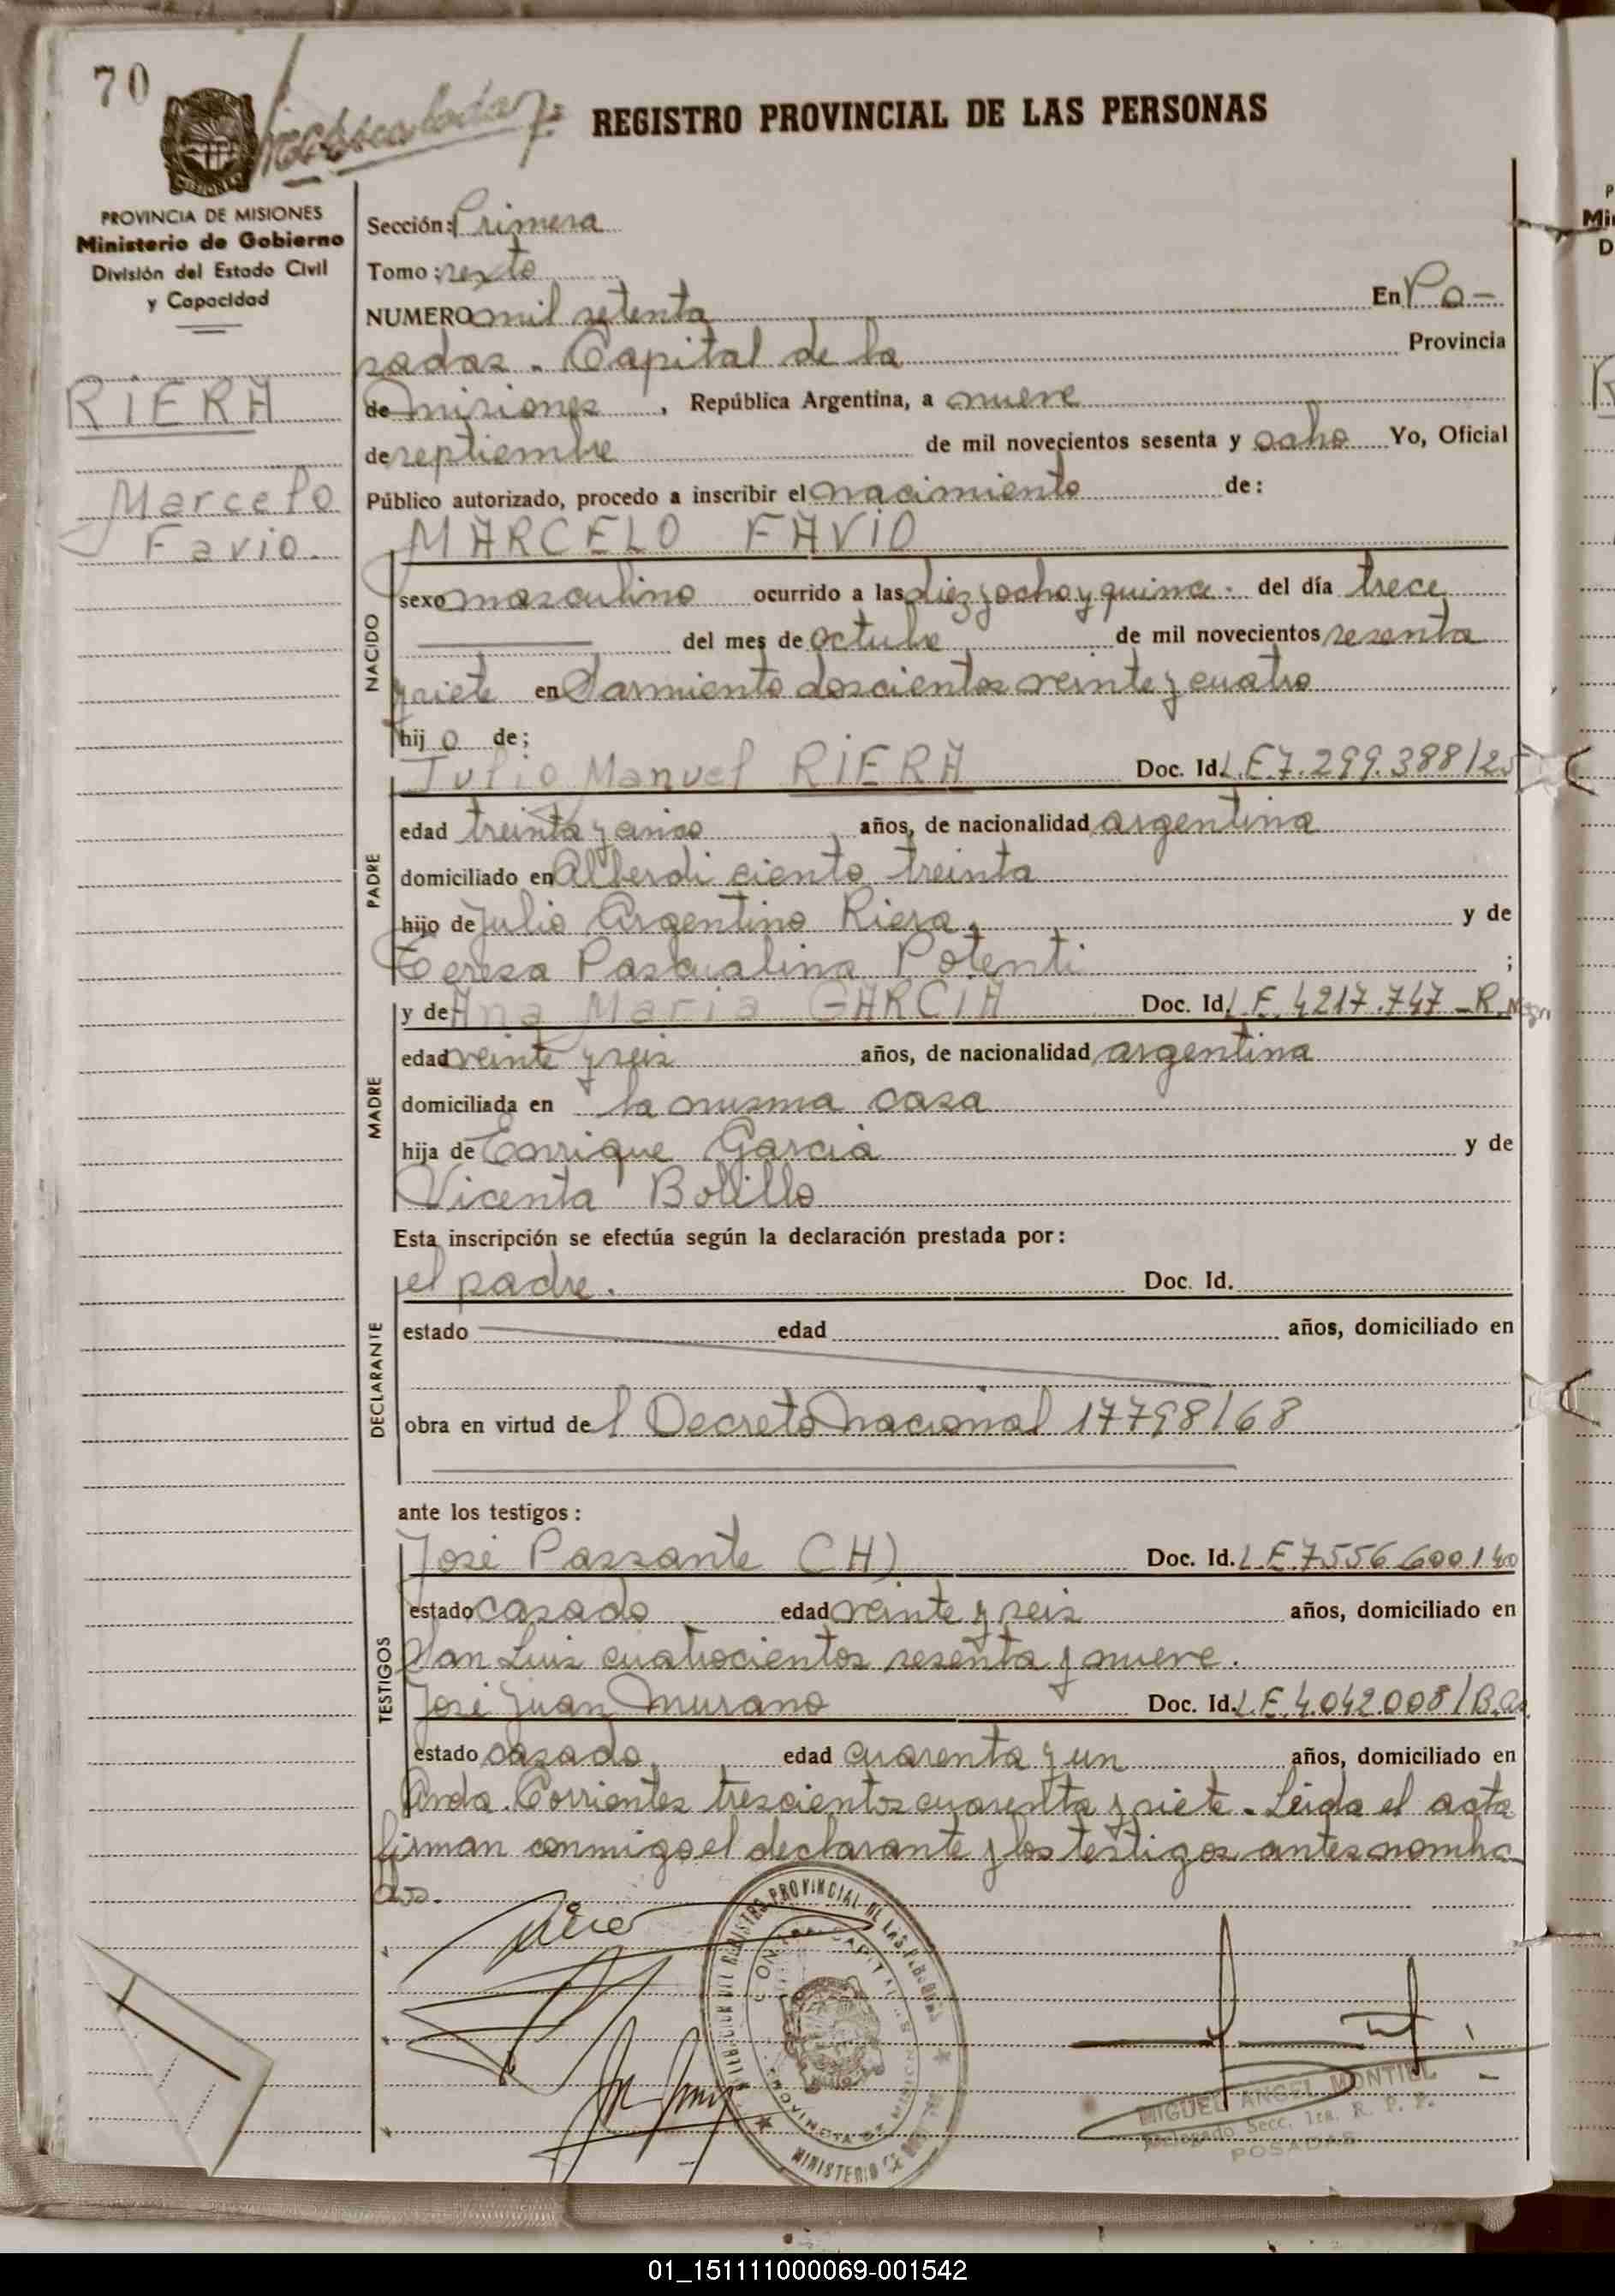 70
REGISTRO PROVINCIAL DE LAS PERSONAS
PROVINCIA DE MISIONES
Ministerio de Gobierno
División del Estado Civil
y Capacidad
RIERA
Marcelo
Favio.
Sección: Primera
Tomo: sexto
NUMERO mil setenta En Po-
sadas. Capital de la Provincia
de Misiones, República Argentina, a nueve
de septiembre de mil novecientos sesenta y ocho Yo, Oficial
Público autorizado, procedo a inscribir el nacimiento de:
MARCELO FAVIO
NACIDO
sexo masculino ocurrido a las diez y ocho y quince. del día trece
del mes de octubre de mil novecientos sesenta
y siete en Sarmiento doscientos veinte y cuatro
hijo de;
Julio Manuel RIERA Doc. Id. L.E 7.299.388/25
PADRE
edad treinta y cinco años, de nacionalidad argentina
domiciliado en Alberdi ciento treinta
hijo de Julio Argentino Riera, y de
Teresa Pascualina Potenti ;
y de Ana Maria GARCIA Doc. Id L.E. 4217.747 - R. Negro
MADRE
edad veinte y seis años, de nacionalidad argentina
domiciliada en la misma casa
hija de Enrique Garcia y de
Vicenta Bolillo
Esta inscripción se efectúa según la declaración prestada por:
el padre. Doc. Id.
DECLARANTE
estado edad años, domiciliado en
obra en virtud del Decreto Nacional 17798/68
ante los testigos:
TESTIGOS
José Passante (H) Doc. Id. L.E. 7556600/40
estado casado edad veinte y seis años, domiciliado en
San Luis cuatrocientos sesenta y nueve.
José Juan Murano Doc. Id. L.E. 4.042.008/B.As.
estado casado edad cuarenta y un años, domiciliado en
Avda. Corrientes trescientos cuarenta y siete. Leida el acta
firman conmigo el declarante y los testigos antes nombra
dos.
MIGUEL ANGEL MONTIEL
Delegado Secc. 1ra. R. P. P.
POSADAS
01_151111000069-001542